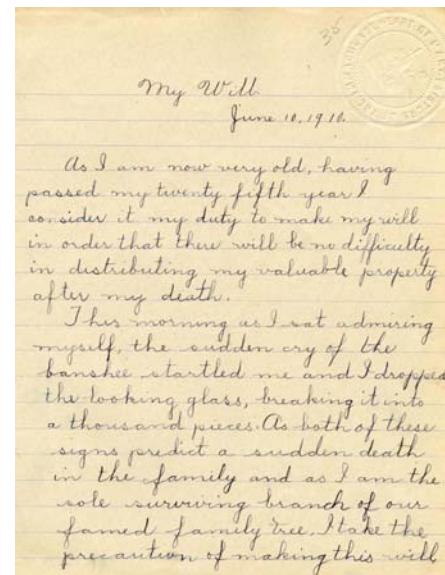 35
My Will.
June 10, 1910.
As I am now very old, having
passed my twenty fifth year I
consider it my duty to make my will
in order that there will be no difficulty
in distributing my valuable property
after my death.
This morning as I sat admiring
myself, the sudden cry of the
banshee startled me and I dropped
the looking glass, breaking it into
a thousand pieces. As both of these
signs predict a sudden death
in the family and as I am the
sole surviving branch of our
famed family tree, I take the
precaution of making this will